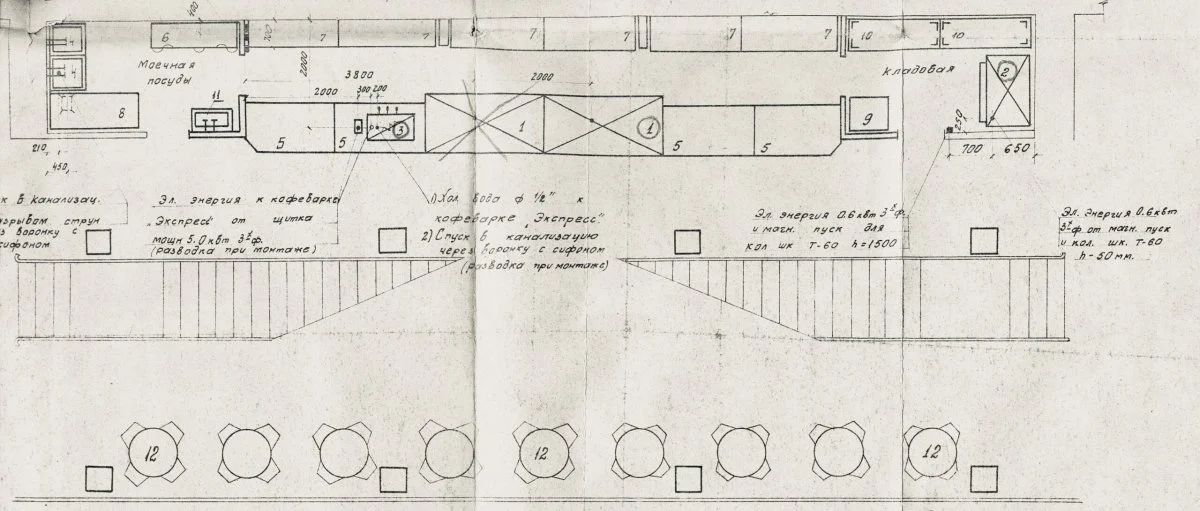 400
6
7
7
7
7
7
7
10
10
700
2000
Моечная
посуды
кладовая
2
3800
2000
2000
300
200
8
11
5
5
3
1
1
5
5
9
250
700
650
210
450
к в канализац.
Эл. энергия к кофеварке
"Экспресс" от щитка
мощн 5.0 квт 3ф.
(разводка при монтаже)
разрывом струи
воронку с
сифоном
1) Хол. вода ф 1/2" к
кофеварке "Экспресс"
2) Спуск в канализацию
через воронку с сифоном
(разводка при монтаже)
Эл. энергия 0.6 квт 3ф.
и магн. пуск для
хол шк Т-60 h=1500
Эл. энергия 0.6 квт
3ф. от магн. пуск
к хол. шк. Т-60
h-50 мм.
12
12
12